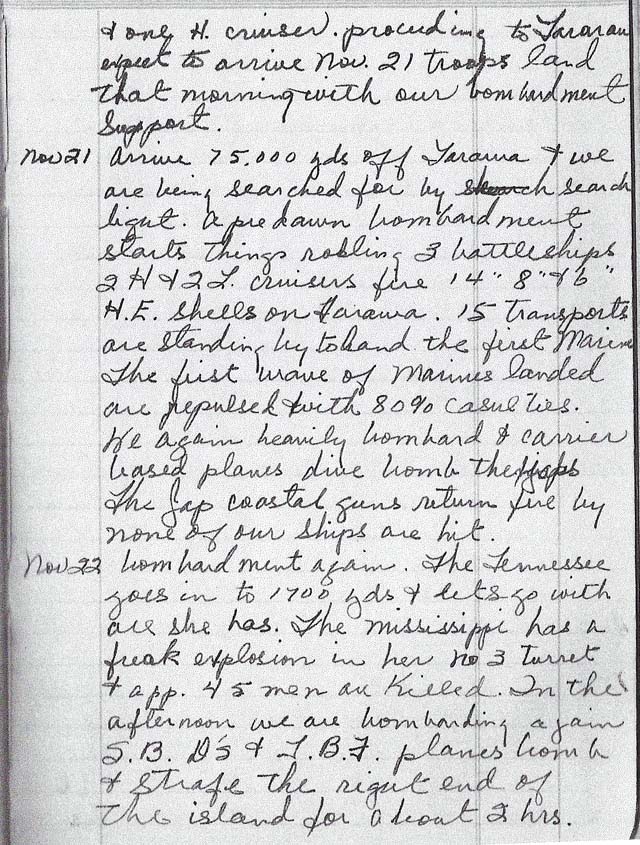 & one H. cruiser. proceeding to Tarawa
expect to arrive Nov. 21 troops land
that morning with our bombardment
Support.
Nov 21 Arrive 75,000 yds off Tarawa & we
are being searched for by search search
light. A predawn bombardment
starts things rolling 3 battleships
2 H & 2 L. cruisers fire 14" 8" & 6"
H.E. shells on Tarawa. 15 transports
are standing by to land the first Marine
The first wave of Marines landed
are repulsed with 80% casulties.
We again heavily bombard & carrier
based planes dive bomb the japs
The Jap coastal guns return fire by
none of our ships are hit.
Nov 22 bombardment again. The Tennessee
goes in to 1700 yds & lets go with
all she has. The Mississippi has a
freak explosion in her no 3 turret
& app. 45 men are killed. In the
afternoon we are bombarding again
S.B. D's & T.B.F. planes bomb
& strafe the right end of
the island for about 2 hrs.